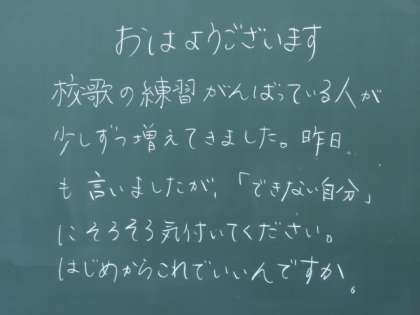 おはようございます
校歌の練習がんばっている人が
少しずつ増えてきました。昨日
も言いましたが、「できない自分」
にそろそろ気付いてください。
はじめからこれでいいんですか。